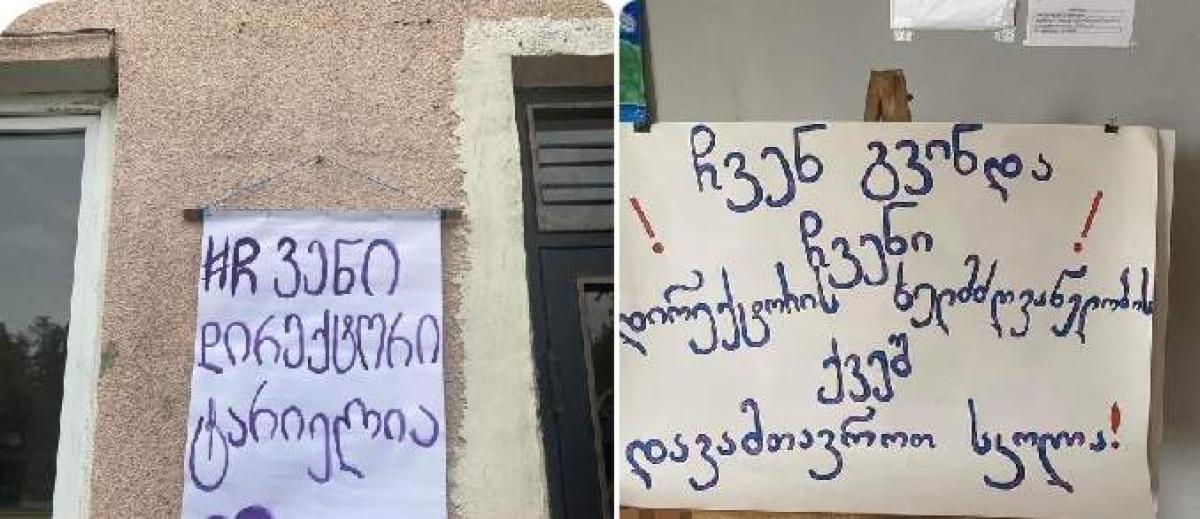 #ჩვენი
დირექტორი
ტარიელია
ჩვენ გვინდა
! ჩვენი !
დირექტორის ხელმძღვანელობის
ქვეშ
დავამთავროთ სკოლა!